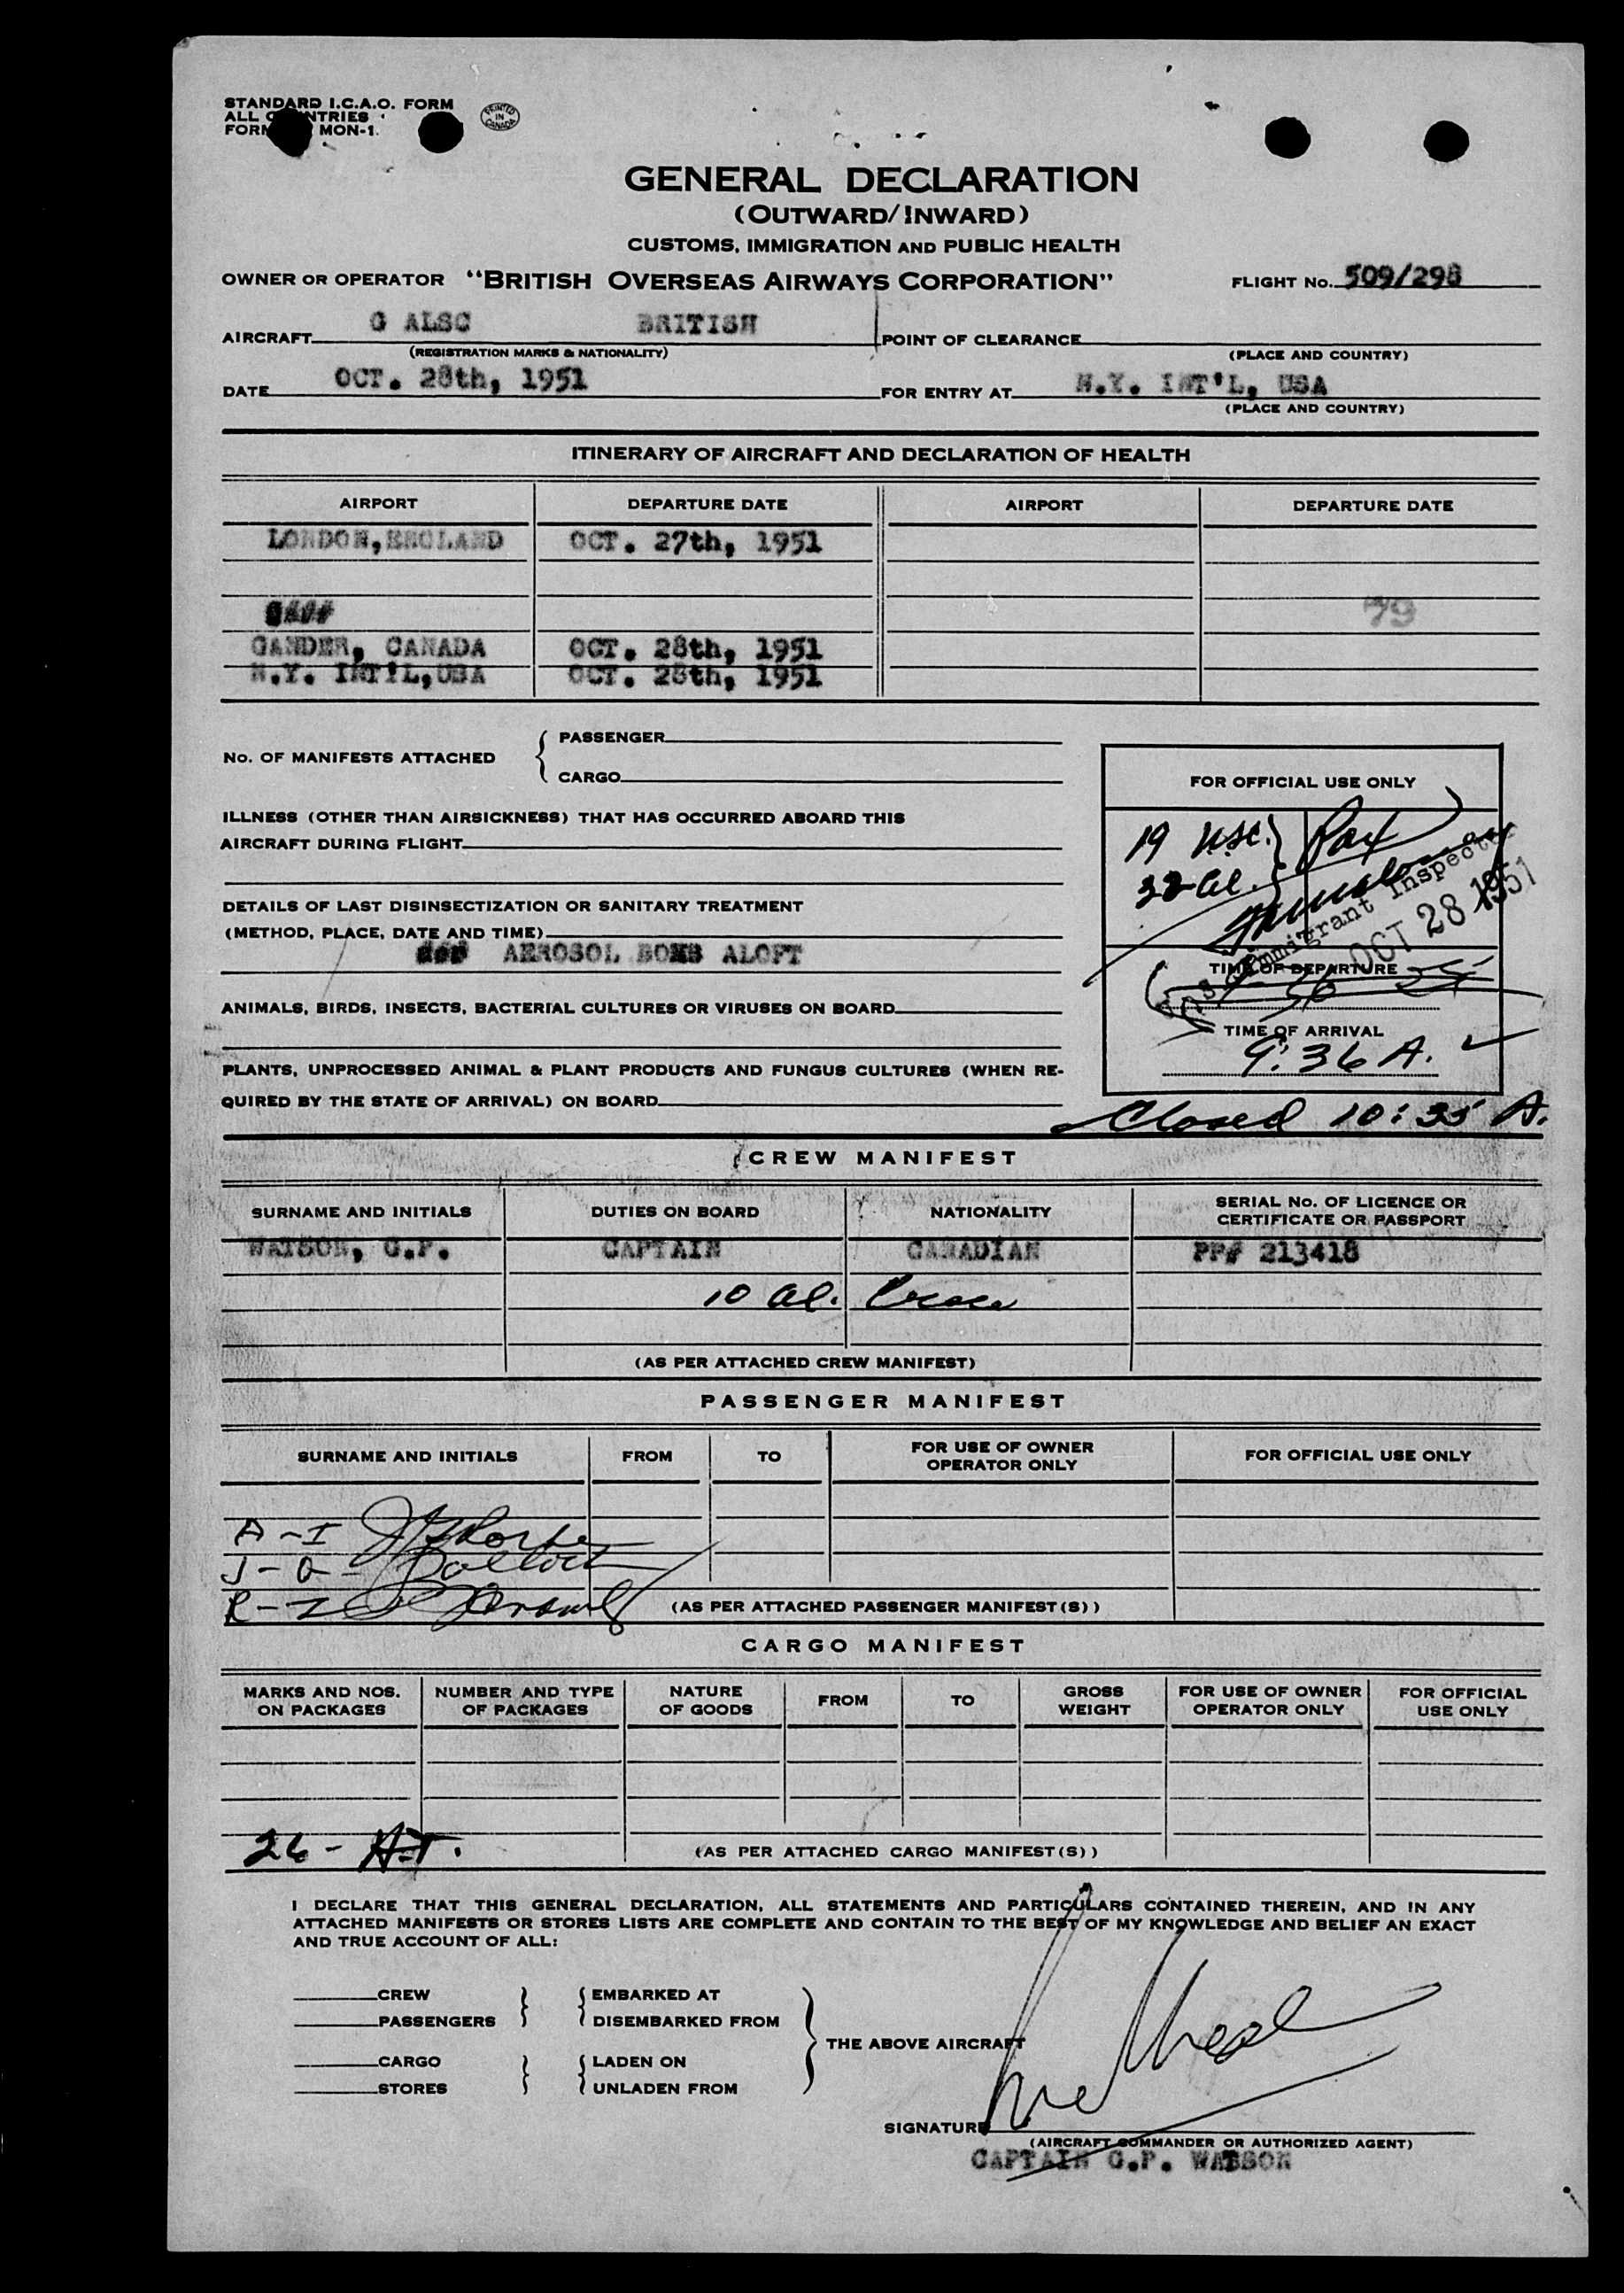 STANDARD I.C.A.O. FORM
ALL COUNTRIES
FORM MON-1.
PRINTED IN CANADA
GENERAL DECLARATION
(OUTWARD/INWARD)
CUSTOMS, IMMIGRATION AND PUBLIC HEALTH
OWNER OR OPERATOR "BRITISH OVERSEAS AIRWAYS CORPORATION" FLIGHT No. 509/298
AIRCRAFT G ALSC BRITISH POINT OF CLEARANCE
(REGISTRATION MARKS & NATIONALITY) (PLACE AND COUNTRY)
DATE OCT. 28th, 1951 FOR ENTRY AT N.Y. INT'L, USA
(PLACE AND COUNTRY)
ITINERARY OF AIRCRAFT AND DECLARATION OF HEALTH
AIRPORT DEPARTURE DATE AIRPORT DEPARTURE DATE
LONDON, ENGLAND OCT. 27th, 1951
79
GANDER, CANADA OCT. 28th, 1951
N.Y. INT'L, USA OCT. 28th, 1951
No. OF MANIFESTS ATTACHED { PASSENGER
CARGO
ILLNESS (OTHER THAN AIRSICKNESS) THAT HAS OCCURRED ABOARD THIS
AIRCRAFT DURING FLIGHT
DETAILS OF LAST DISINSECTIZATION OR SANITARY TREATMENT
(METHOD, PLACE, DATE AND TIME)
AEROSOL BOMB ALOFT
ANIMALS, BIRDS, INSECTS, BACTERIAL CULTURES OR VIRUSES ON BOARD
PLANTS, UNPROCESSED ANIMAL & PLANT PRODUCTS AND FUNGUS CULTURES (WHEN RE-
QUIRED BY THE STATE OF ARRIVAL) ON BOARD
FOR OFFICIAL USE ONLY
19 USC. } Pax
32 al.
Immigrant Inspector
OCT 28 1951
TIME OF DEPARTURE
TIME OF ARRIVAL
9:36 A.
Closed 10:35 A.
CREW MANIFEST
SURNAME AND INITIALS DUTIES ON BOARD NATIONALITY SERIAL No. OF LICENCE OR
CERTIFICATE OR PASSPORT
WATSON, G.P. CAPTAIN CANADIAN PP# 213418
10 al. Crew
(AS PER ATTACHED CREW MANIFEST)
PASSENGER MANIFEST
SURNAME AND INITIALS FROM TO FOR USE OF OWNER
OPERATOR ONLY FOR OFFICIAL USE ONLY
A - I
J - Q -
R - Z
(AS PER ATTACHED PASSENGER MANIFEST(S))
CARGO MANIFEST
MARKS AND NOS.
ON PACKAGES NUMBER AND TYPE
OF PACKAGES NATURE
OF GOODS FROM TO GROSS
WEIGHT FOR USE OF OWNER
OPERATOR ONLY FOR OFFICIAL
USE ONLY
26 - H.T.
(AS PER ATTACHED CARGO MANIFEST(S))
I DECLARE THAT THIS GENERAL DECLARATION, ALL STATEMENTS AND PARTICULARS CONTAINED THEREIN, AND IN ANY
ATTACHED MANIFESTS OR STORES LISTS ARE COMPLETE AND CONTAIN TO THE BEST OF MY KNOWLEDGE AND BELIEF AN EXACT
AND TRUE ACCOUNT OF ALL:
CREW } { EMBARKED AT
PASSENGERS DISEMBARKED FROM
} THE ABOVE AIRCRAFT
CARGO } { LADEN ON
STORES UNLADEN FROM
SIGNATURE
(AIRCRAFT COMMANDER OR AUTHORIZED AGENT)
CAPTAIN G.P. WATSON